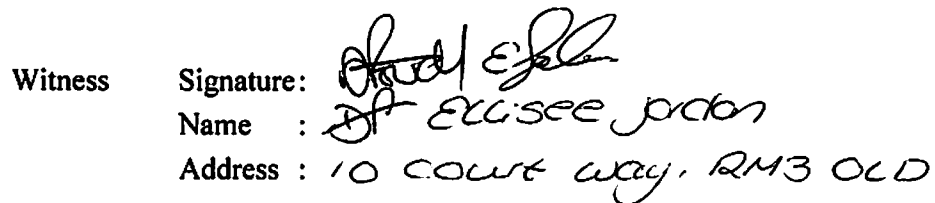 Witness Signature:
Name : Ellisee Jordan
Address : 10 Court Way, RM3 OLD